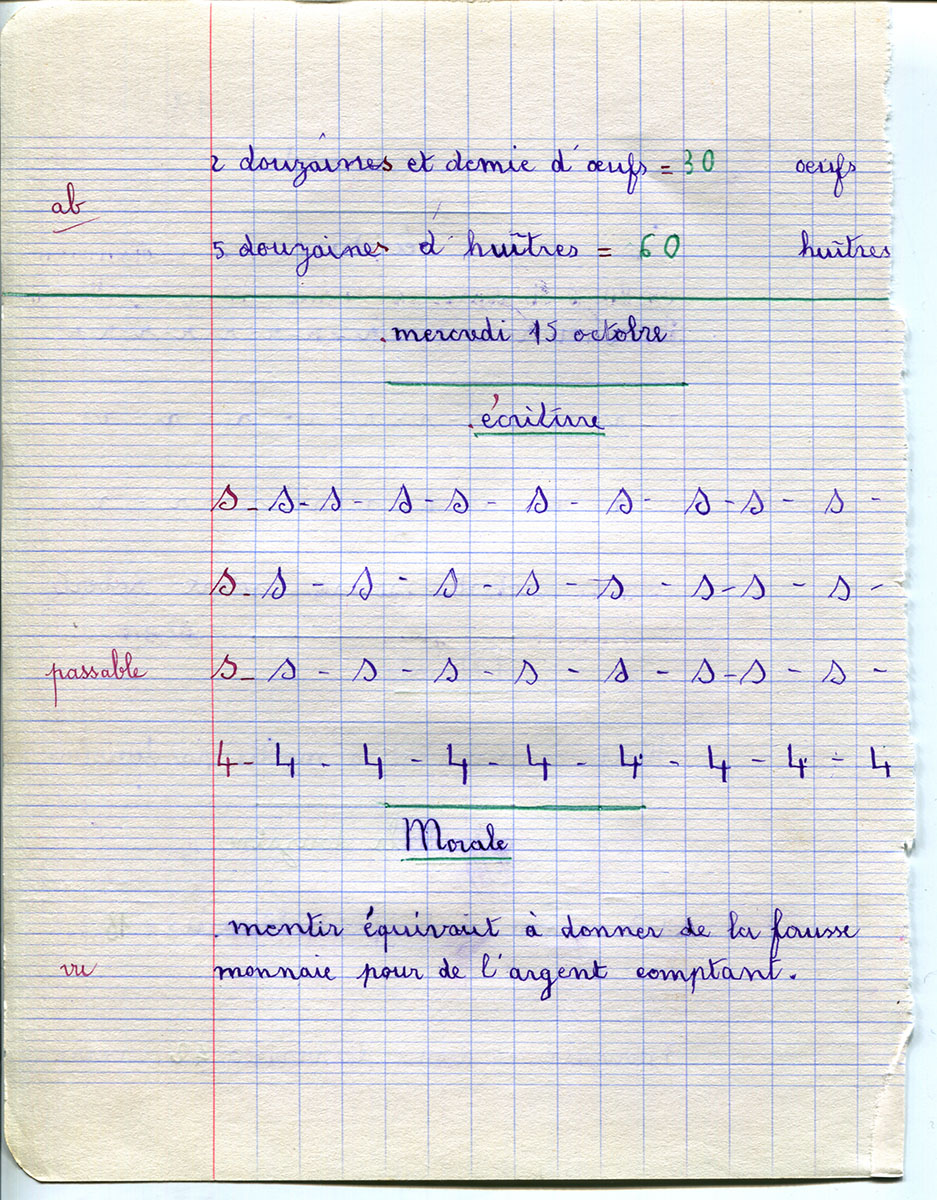 2 douzaines et demie d'œufs = 30 œufs
ab
5 douzaines d'huîtres = 60 huîtres
.mercredi 15 octobre
.écriture
s - s - s - s - s - s - s - s - s - s -
s - s - s - s - s - s - s - s - s -
passable s - s - s - s - s - s - s - s - s -
4 - 4 - 4 - 4 - 4 - 4 - 4 - 4 - 4
Morale
. mentir équivaut à donner de la fausse
vu monnaie pour de l'argent comptant.